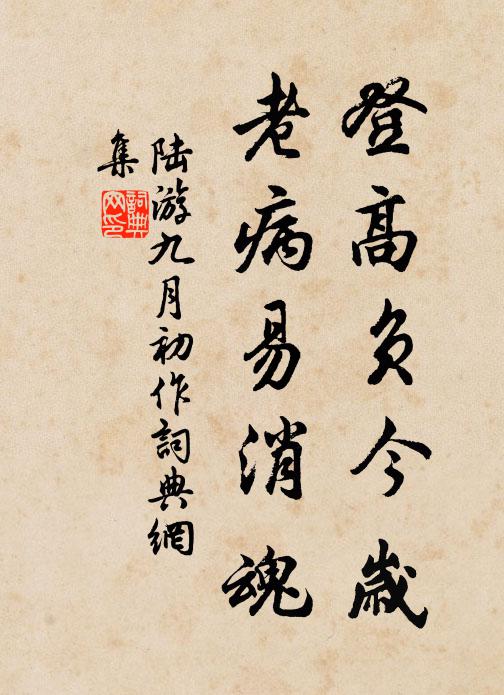 登高負今歲
老病易消魂
陆游九月初作詞典網
集
詞典
网印